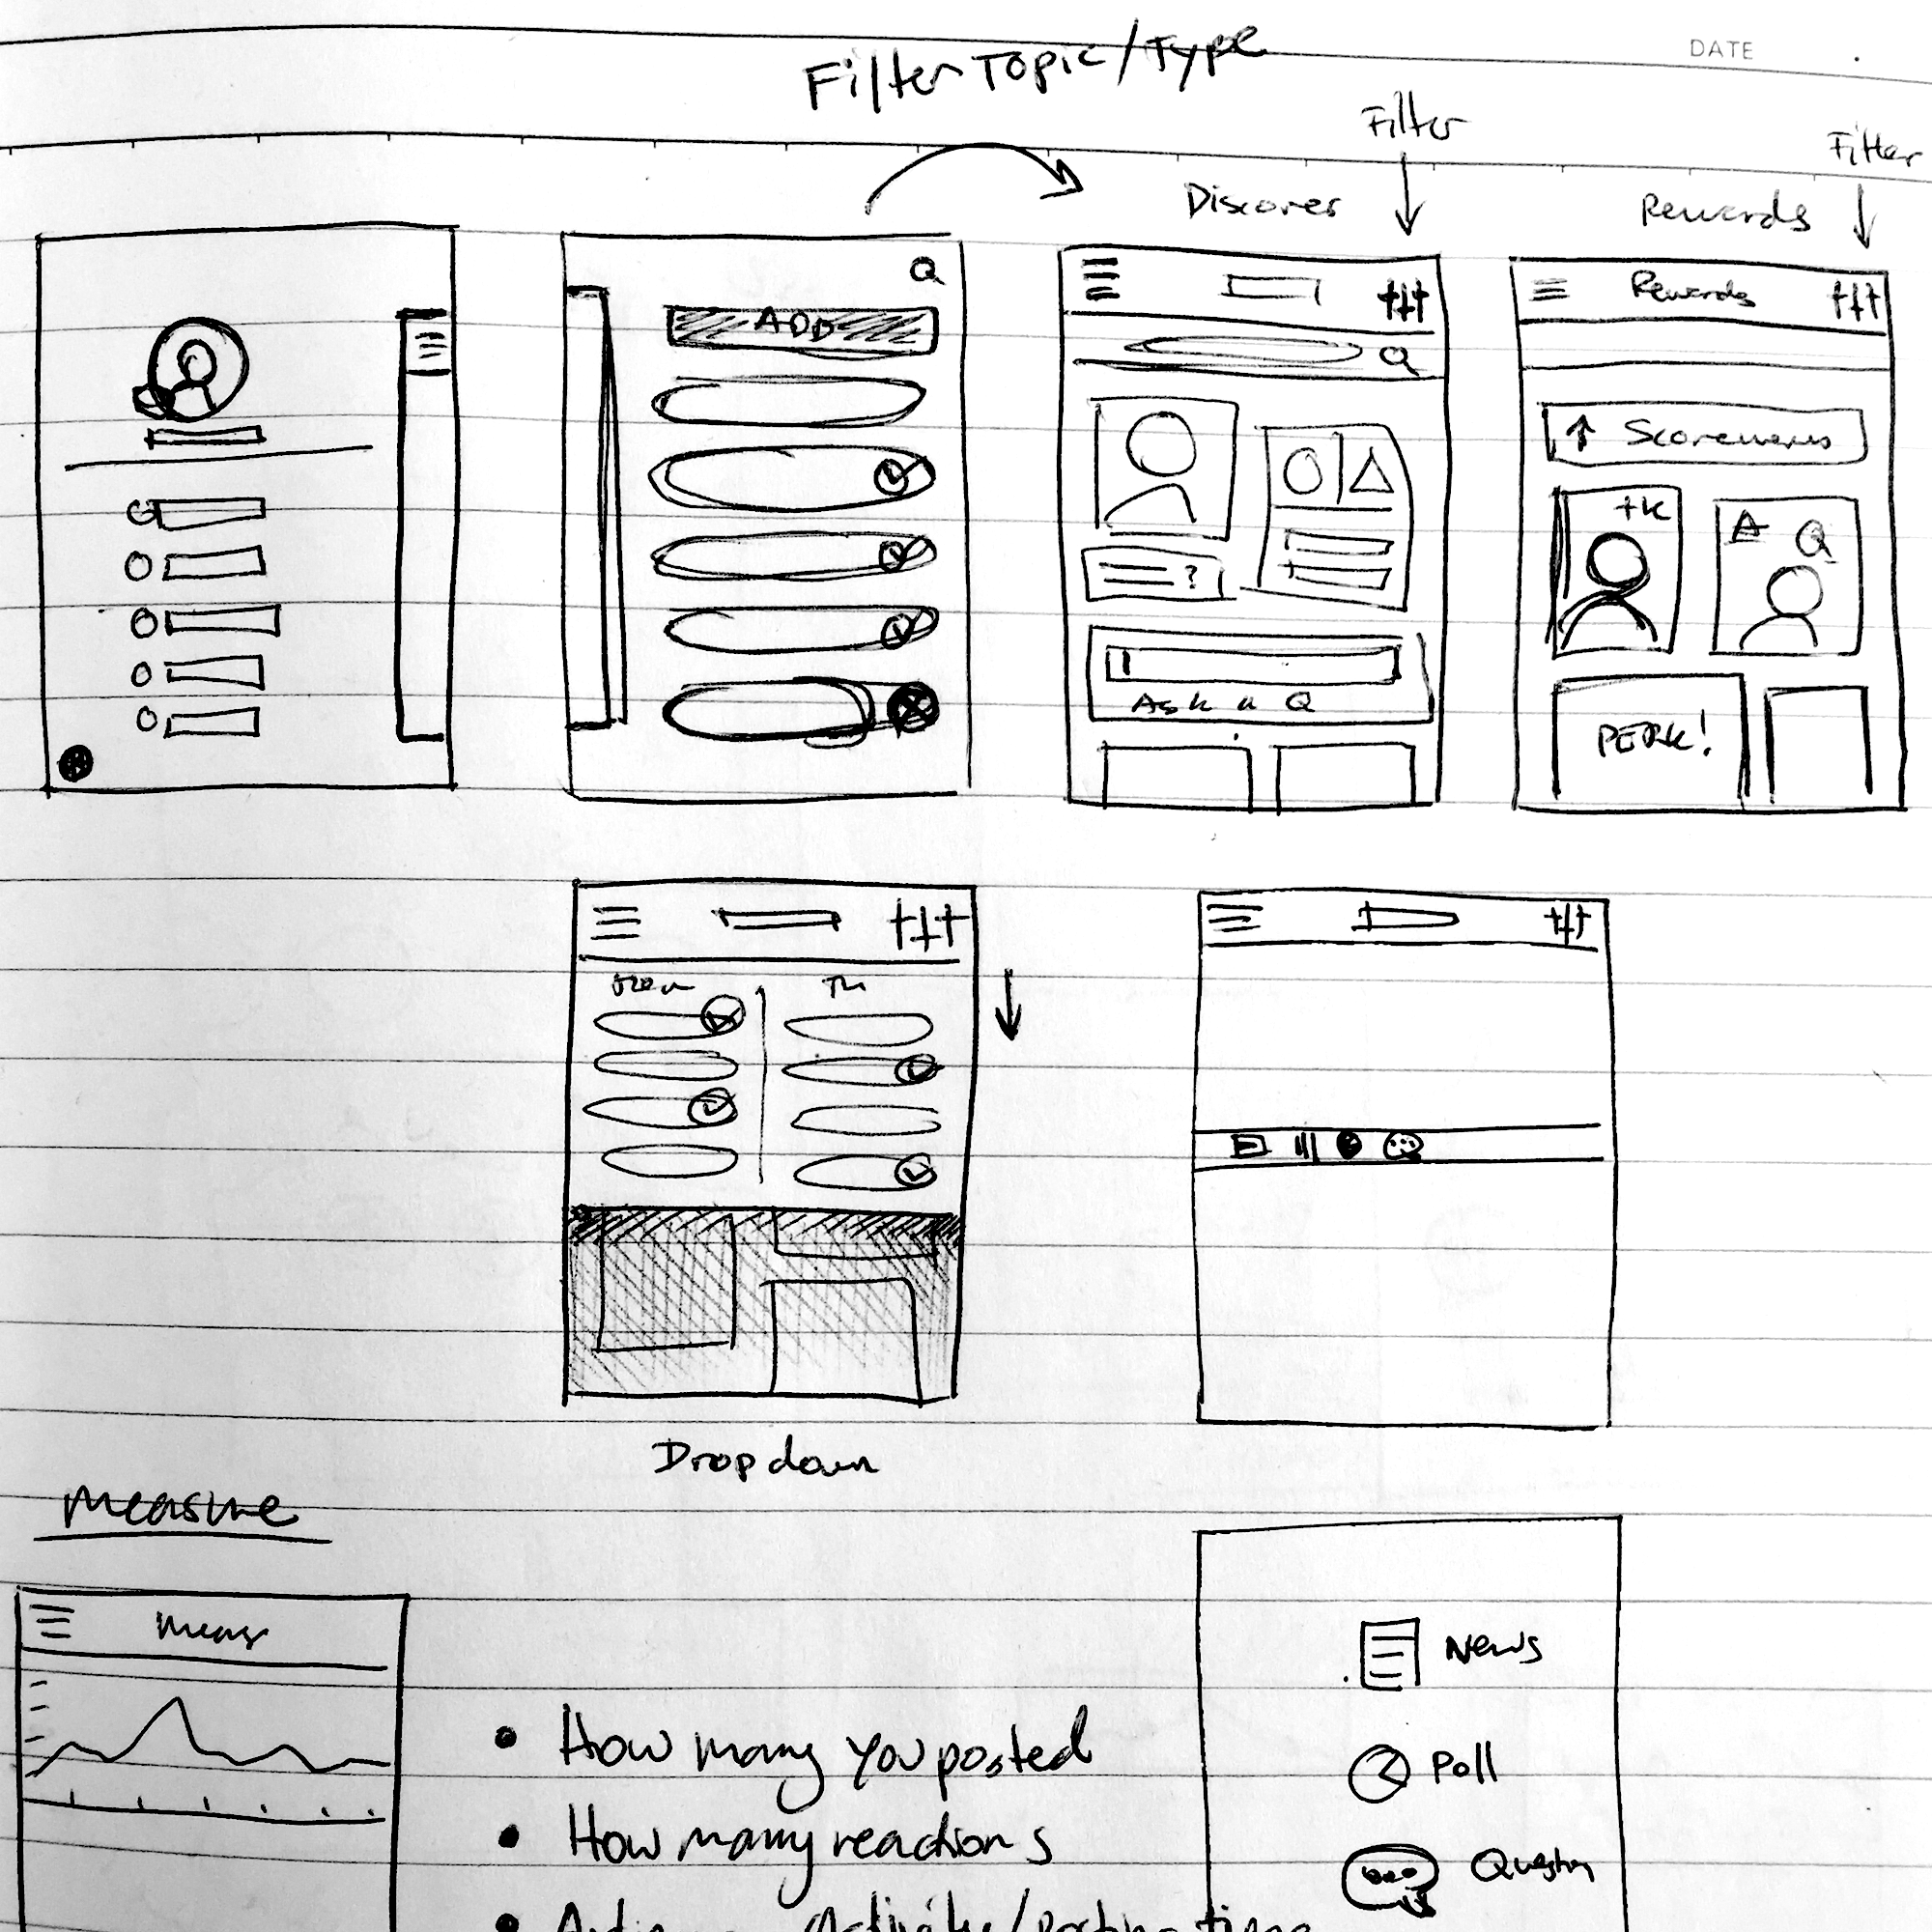 DATE
Filter Topic/Type
Filter
Filter
Discover
Rewards
ADD
Rewards
Ask a Q
+K
A Q
PERK!
Dropdown
Measure
Meas
• How many you posted
• How many reactions
activity/posting time
News
Poll
Question